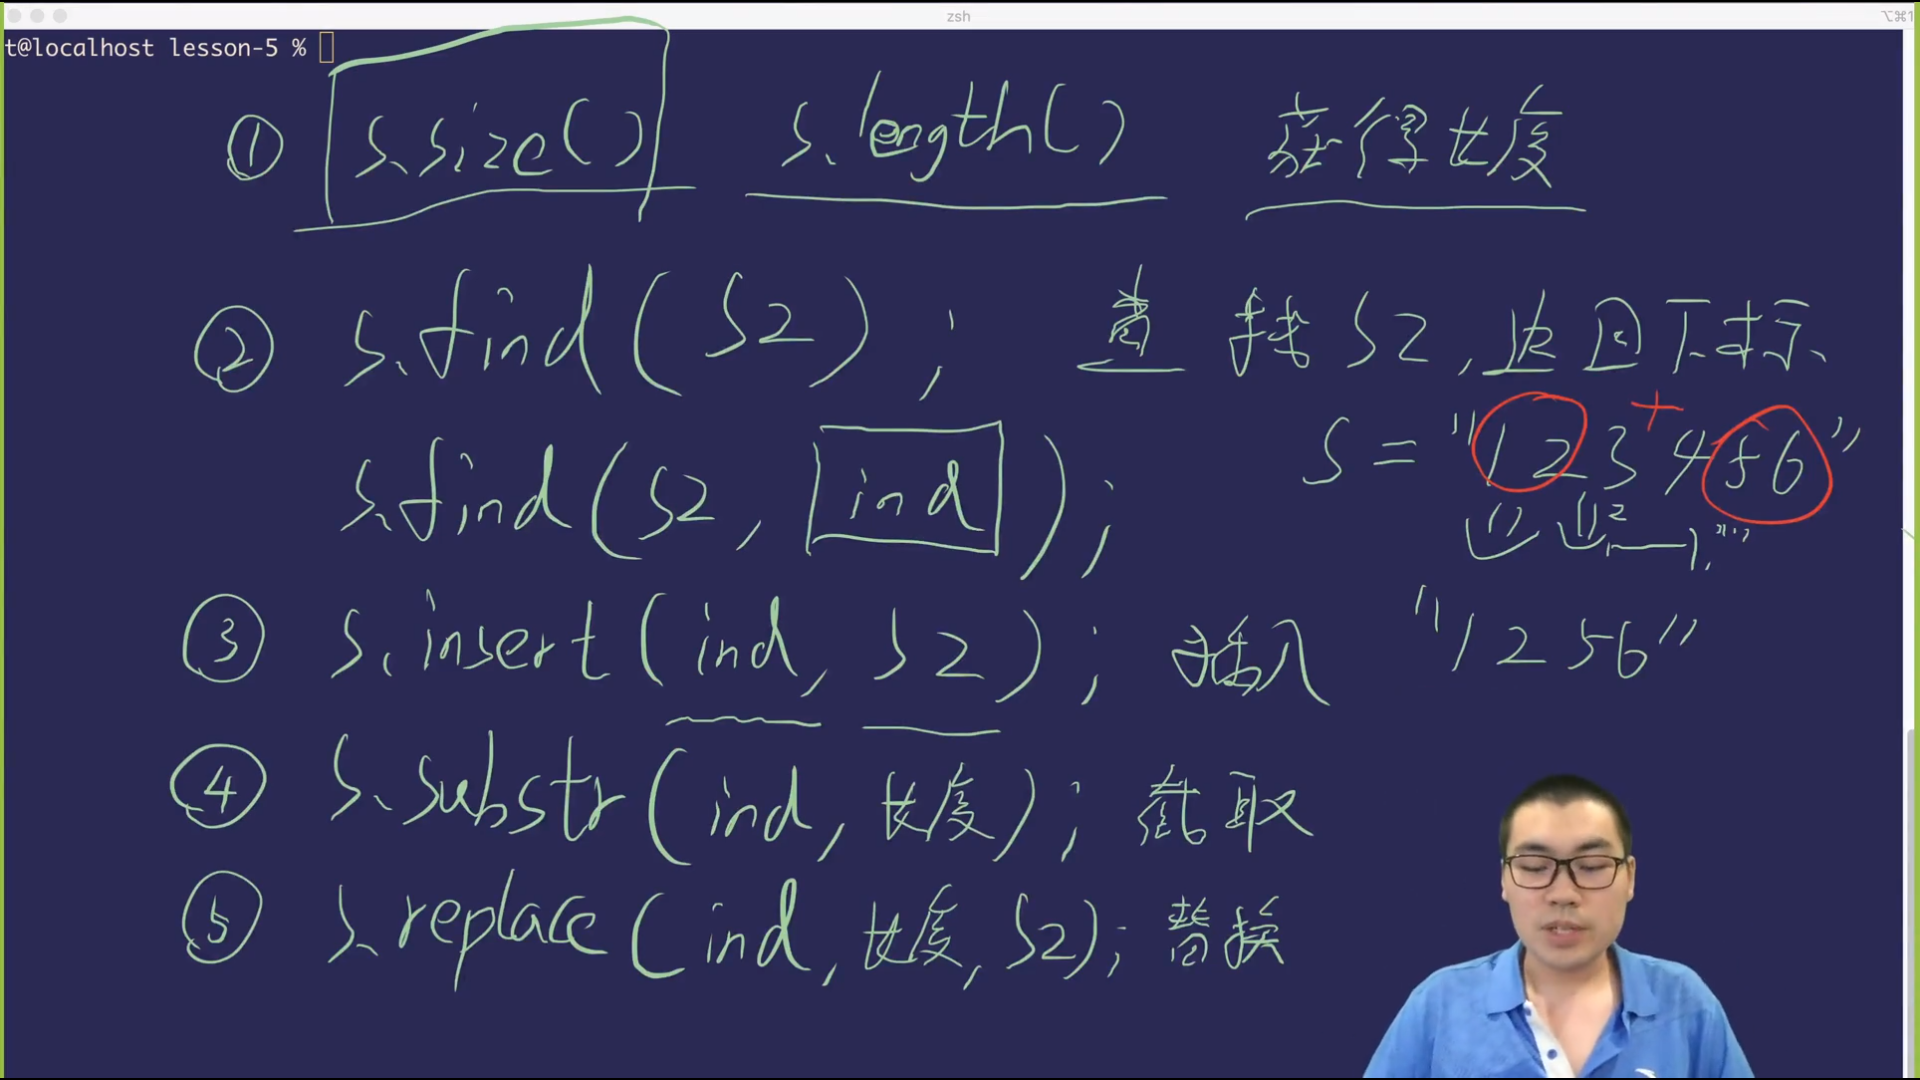 zsh
⌥⌘1
t@localhost lesson-5 %
① s.size() s.length() 获得长度
② s.find(s2); 查找s2,返回下标
s.find(s2, ind);
s = "123456"
③ s.insert(ind, s2); 插入
"1256"
④ s.substr(ind, 长度); 截取
⑤ s.replace(ind, 长度, s2); 替换